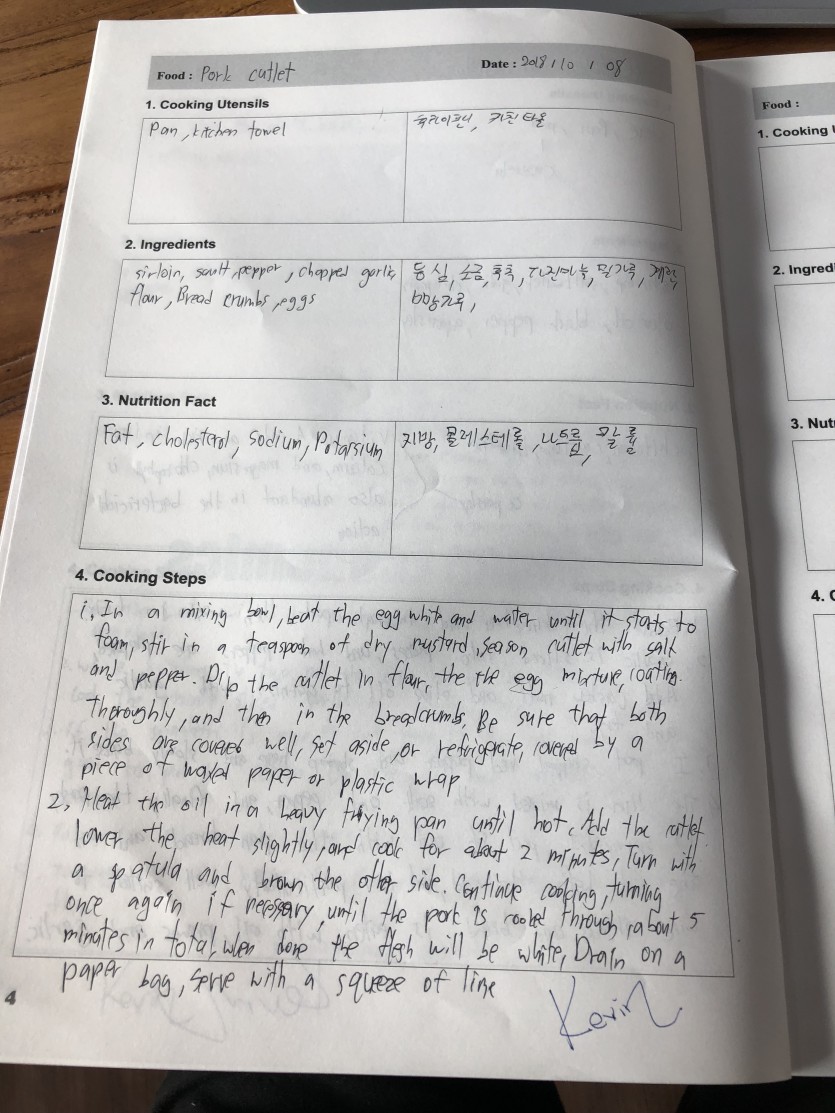 Food : Pork cutlet
Date : 2018 / 10 / 08
1. Cooking Utensils
Pan, kitchen towel
후라이팬, 키친타올
2. Ingredients
sirloin, sault, pepper, chopped garlic,
flour, Bread crumbs, eggs
등심, 소금, 후추, 다진마늘, 밀가루, 계란,
빵가루,
3. Nutrition Fact
Fat, cholesterol, sodium, Potassium
지방, 콜레스테롤, 나트륨, 칼륨
4. Cooking Steps
1. In a mixing bowl, beat the egg white and water until it starts to
foam, stir in a teaspoon of dry mustard, season cutlet with salt
and pepper. Dip the cutlet in flour, the the egg mixture, coating
thoroughly, and then in the breadcrumbs, Be sure that both
sides are covered well, set aside, or refrigerate, covered by a
piece of waxed paper or plastic wrap
2, Heat the oil in a heavy frying pan until hot. Add the cutlet
lower the heat slightly, and cook for about 2 minutes, Turn with
a spatula and brown the other side. Continue cooking, turning
once again if necessary, until the pork is cooked through, about 5
minutes in total, when done the flesh will be white, Drain on a
paper bag, serve with a squeeze of lime
Kevin
4
Food :
1. Cooking
2. Ingred
3. Nut
4. C